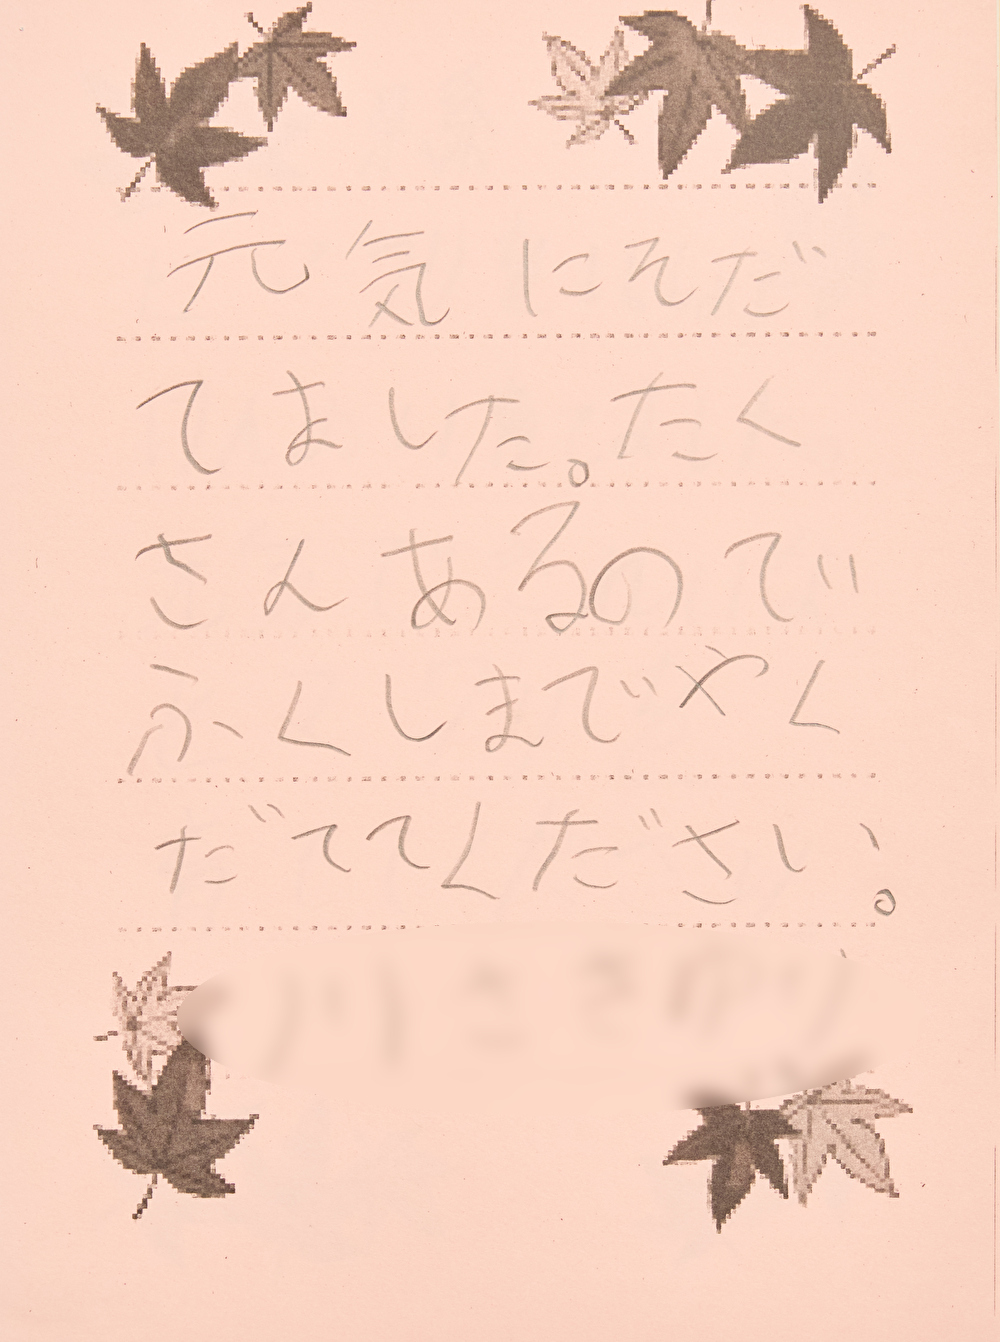 元気にそだ
てました。たく
さんあるので
ふくしまでやく
だててください。